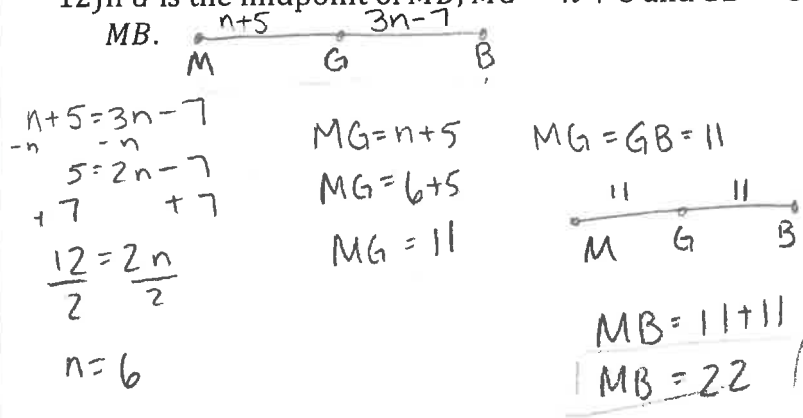 MB.
n+5 3n-7
M G B
n+5=3n-7
-n -n
5=2n-7
+7 +7
12=2n
2 2
n=6
MG=n+5
MG=6+5
MG=11
MG=GB=11
11 11
M G B
MB=11+11
MB=22